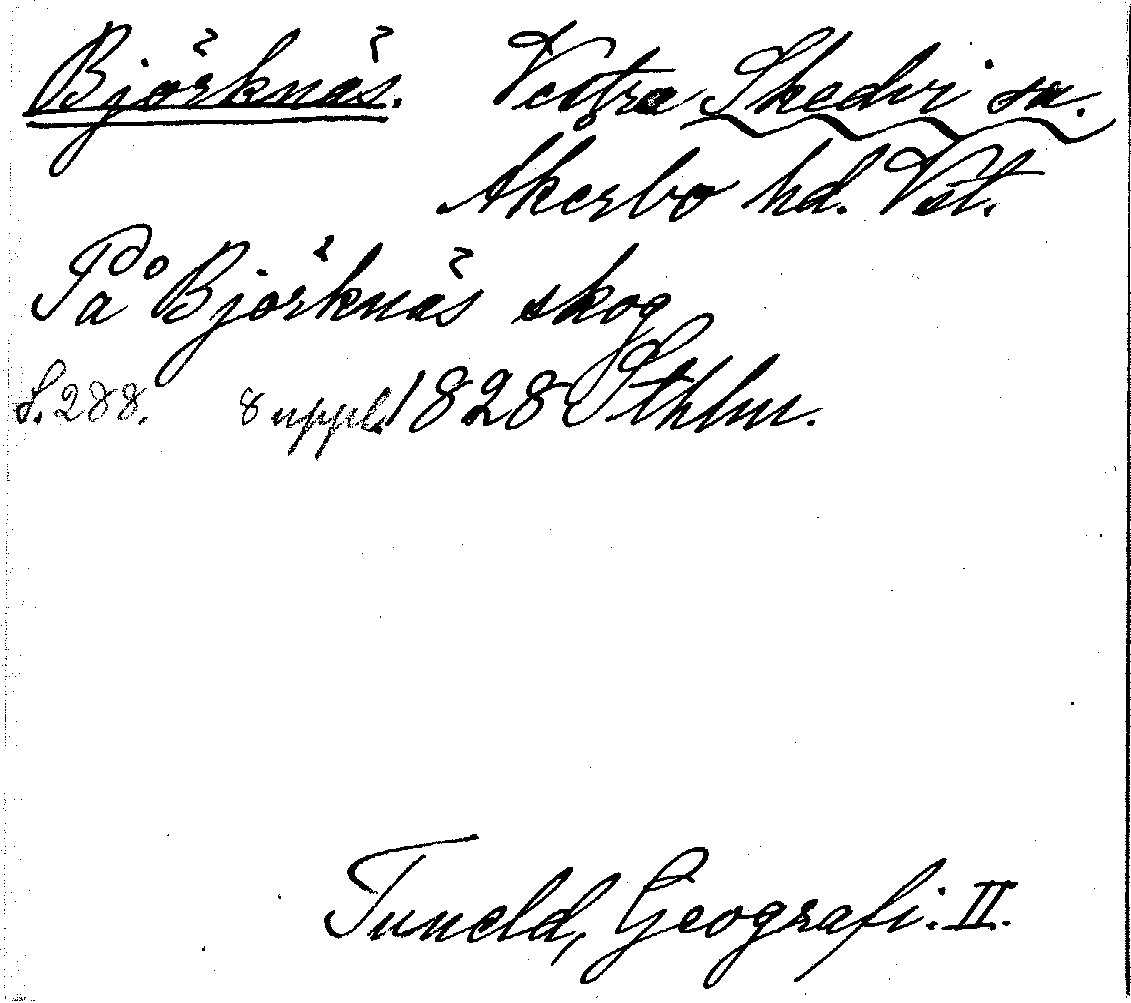 Björknäs. Vestra Skedvi sn.
Åkerbo hd. Vst.
På Björknäs skog
S. 288. 8 uppl. 1828 Sthlm.
Tuneld, Geografi. II.